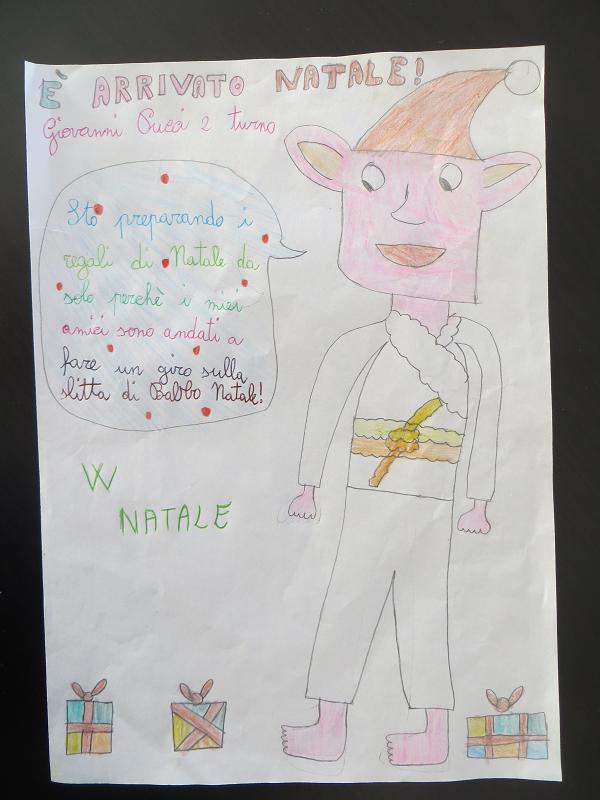 È ARRIVATO NATALE!
Giovanni Pucci 2 turno
Sto preparando i
regali di Natale da
solo perchè i miei
amici sono andati a
fare un giro sulla
slitta di Babbo Natale!
W
NATALE